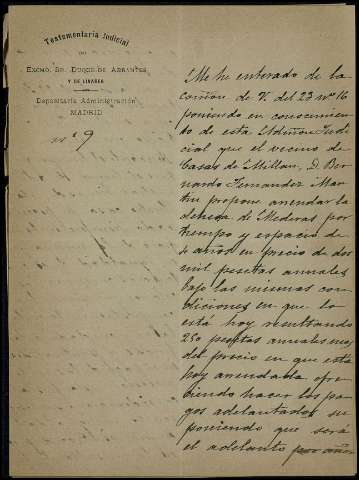 Testamentaría Judicial
DEL
EXCMO. SR. DUQUE DE ABRANTES
Y DE LINARES
Depositaría Administración
MADRID
nº 9
Me he enterado de la
comon de V. del 23 nº 16
poniendo en conocimien
to de esta Admon Judi
cial que el vecino de
Casas de Millan, D. Ber
nardo Fernandez Mar
tin propone arrendar la
dehesa de Mederas por
tiempo y espacio de
4 años en precio de dos
mil pesetas anuales
bajo las mismas con
diciones en que lo
está hoy resultando
250 pesetas anuales mas
del precio en que está
hoy arrendada ofre
ciendo hacer los pa
gos adelantados su
poniendo que será
el adelanto por años